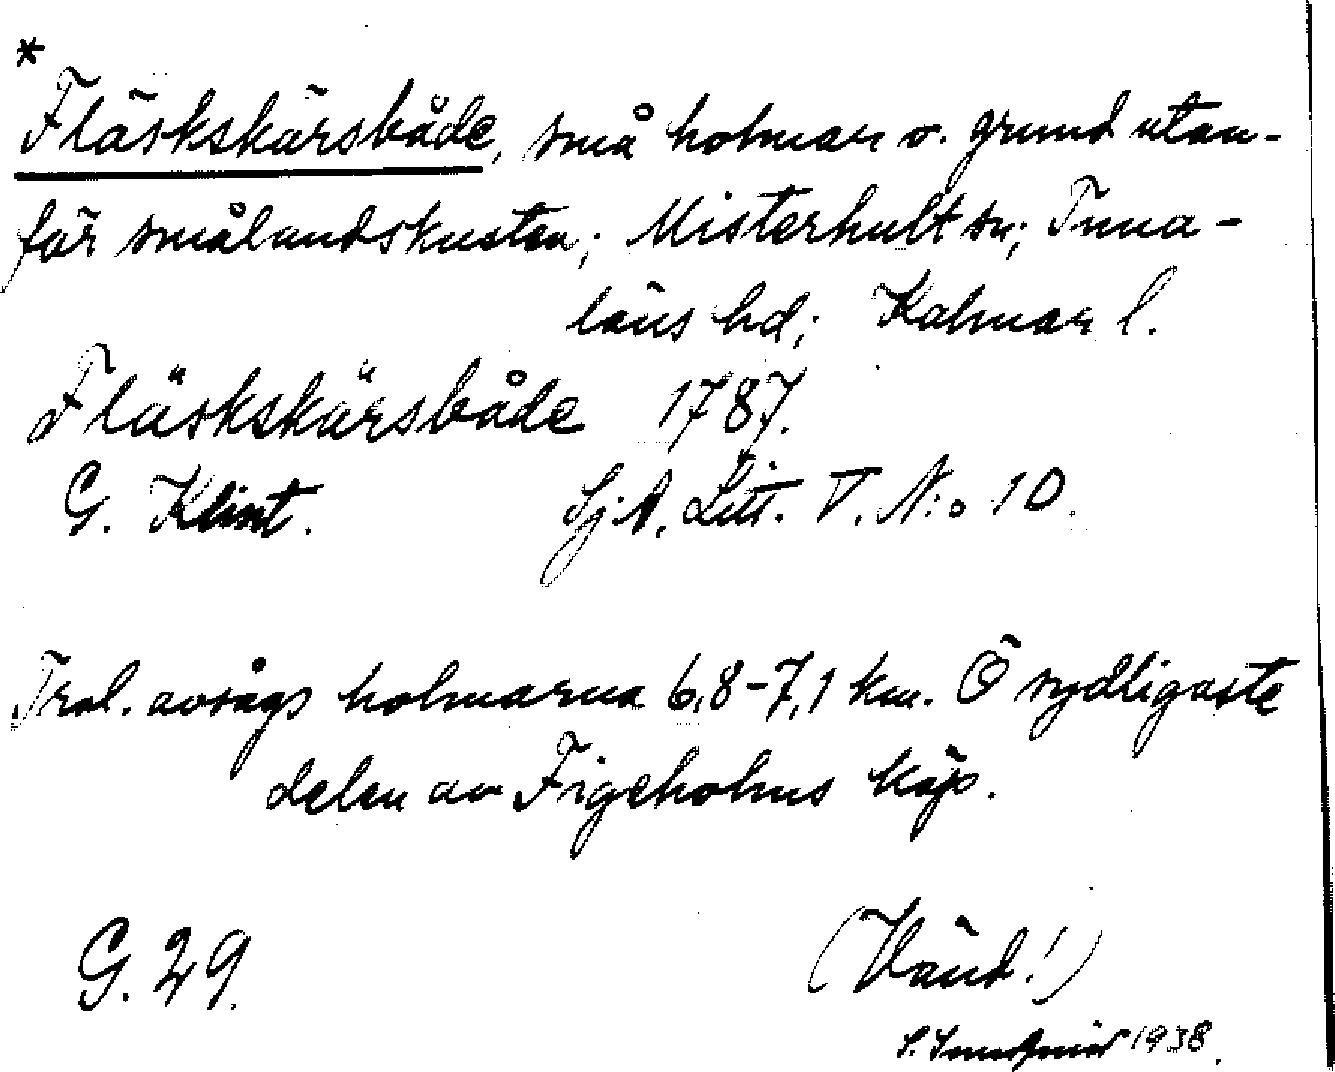 *
Fläskskärsbåde, små holmar o. grund utan-
för smålandskusten; Misterhult sn; Tuna-
läns hd; Kalmar l.
Fläskskärsbåde 1787.
G. Klint. Sj.A. Litt. V. N:o 10.
Trol. avsågs holmarna 6,8-7,1 km. Ö sydligaste
delen av Figeholms köp.
G. 29.
(Vänd!)
S. 1938.